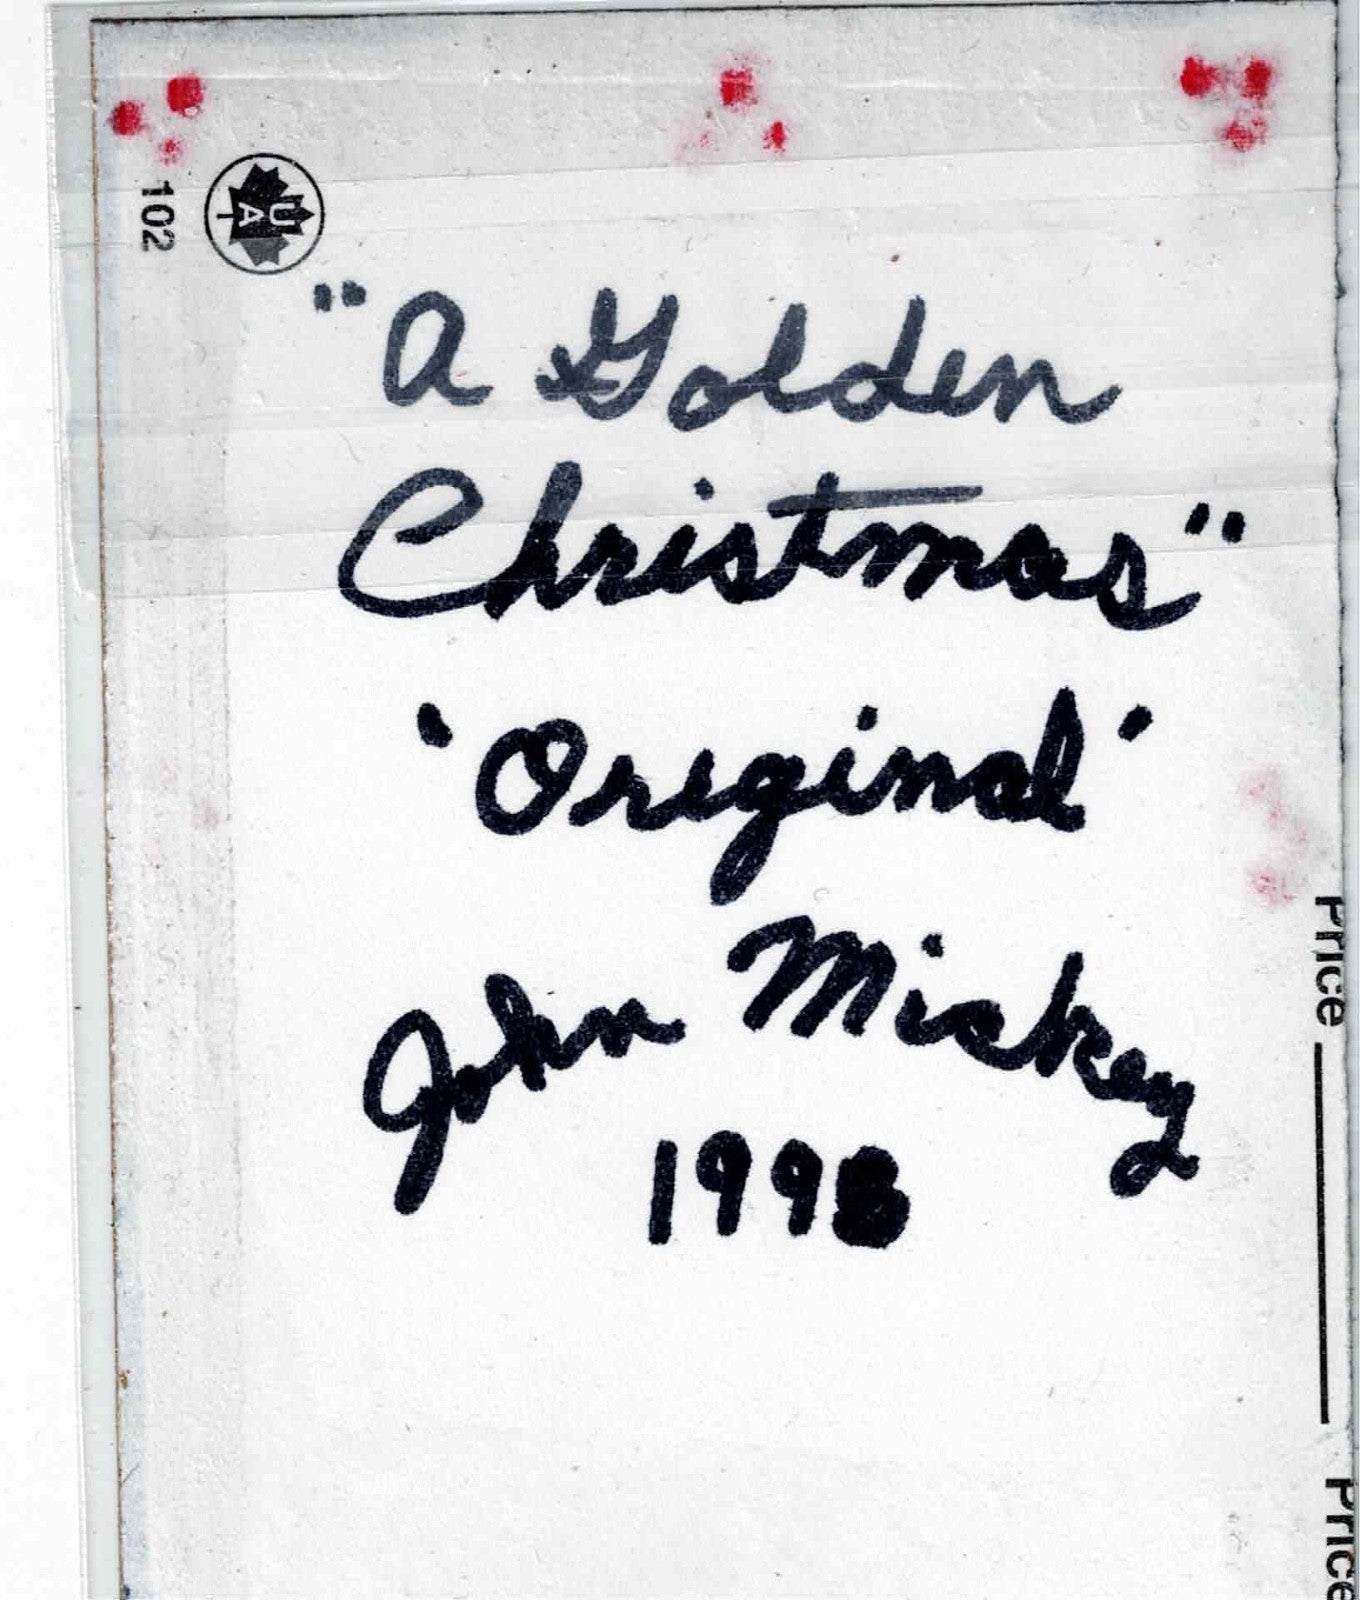 102
U
A
"A Golden
Christmas"
'Original'
John Mickey
1998
Price
Price